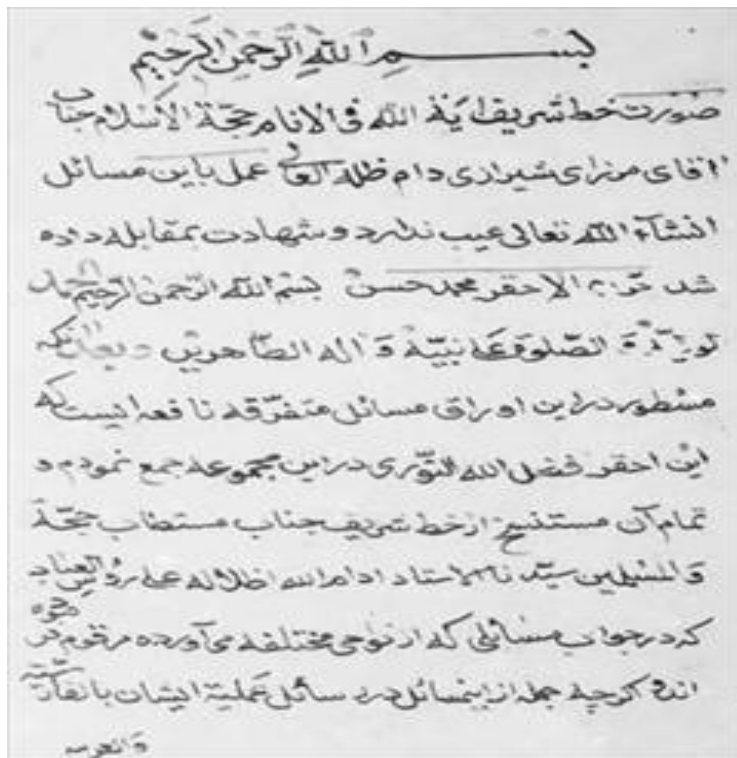 بسم الله الرحمن الرحیم
صورت خط شریف ایة الله فی الانام حجة الاسلام جناب
اقای میرزای شیرازی دام ظله العالی عمل باین مسائل
انشآء الله تعالی عیب ندارد و شهادت بمقابله داده
شد حرره الاحقر محمد حسن بسم الله الرحمن الرحیم الحمد
الصلوة علی نبیه و اله الطاهرین و بعد
مسطور در این اوراق مسائل متفرقه نافعه ایست که
این احقر فضل الله النوری در این مجموعه جمع نمودم و
تمام آن مستنسخ از خط شریف جناب مستطاب حجة
والمسلمین سیدنا الاستاد ادام الله اظلاله علی رؤس العباد
که در جواب مسائلی که از نواحی مختلفه می آورده مرقوم فرموده
اند اگرچه جمله از اینمسائل در رسائل عملیة ایشان